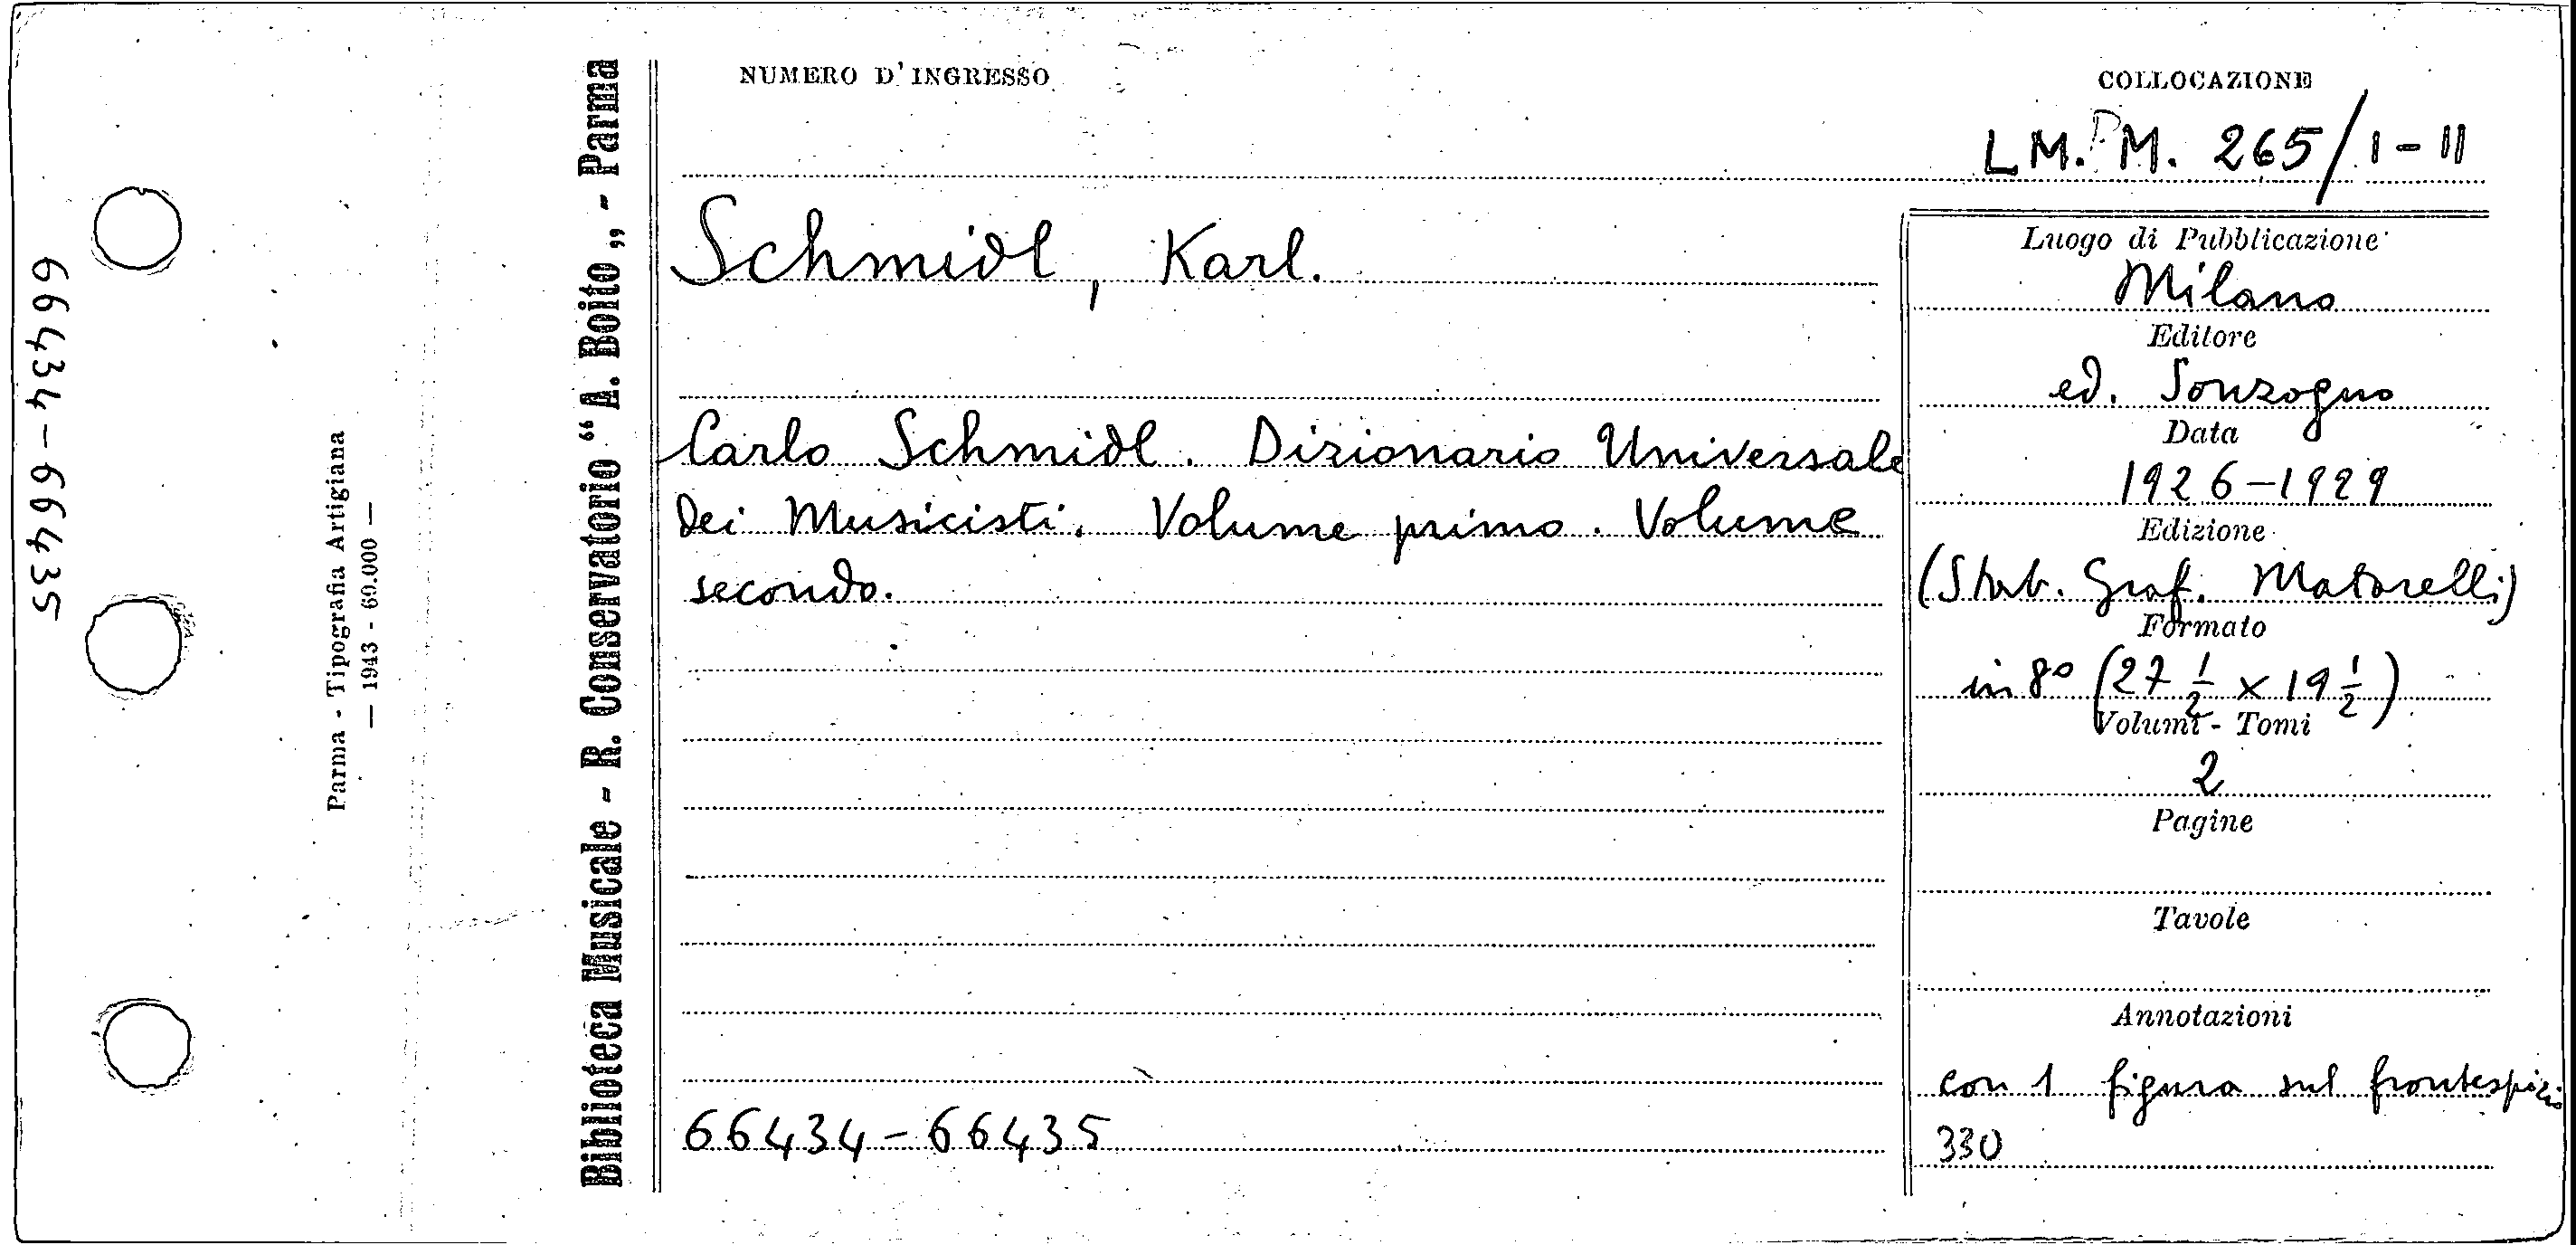 66434-66435
Parma - Tipografia Artigiana
— 1943 - 60.000 —
Biblioteca Musicale - R. Conservatorio “A. Boito„ - Parma
NUMERO D'INGRESSO
COLLOCAZIONE
LM. M. 265/I-II
Schmidl, Karl.
Carlo Schmidl. Dizionario Universale
dei Musicisti. Volume primo. Volume
secondo.
66434-66435
Luogo di Pubblicazione
Milano
Editore
ed. Sonzogno
Data
1926-1929
Edizione
(Stab. Graf. Matarelli)
Formato
in 8° (27 1/2 x 19 1/2)
Volumi - Tomi
2
Pagine
Tavole
Annotazioni
con 1 figura sul frontespizio
330